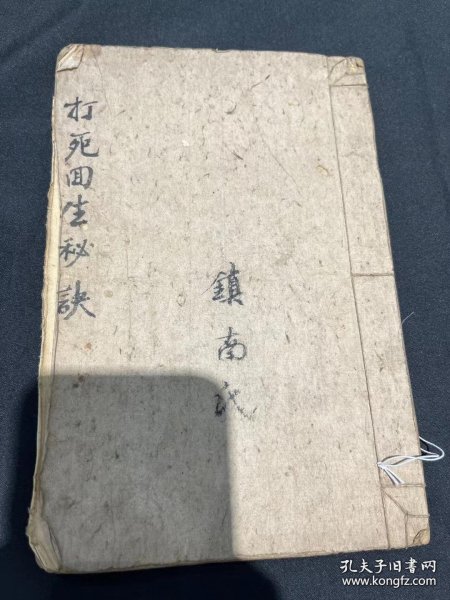 打死回生秘訣
鎮南
孔夫子旧书网
www.kongfz.com